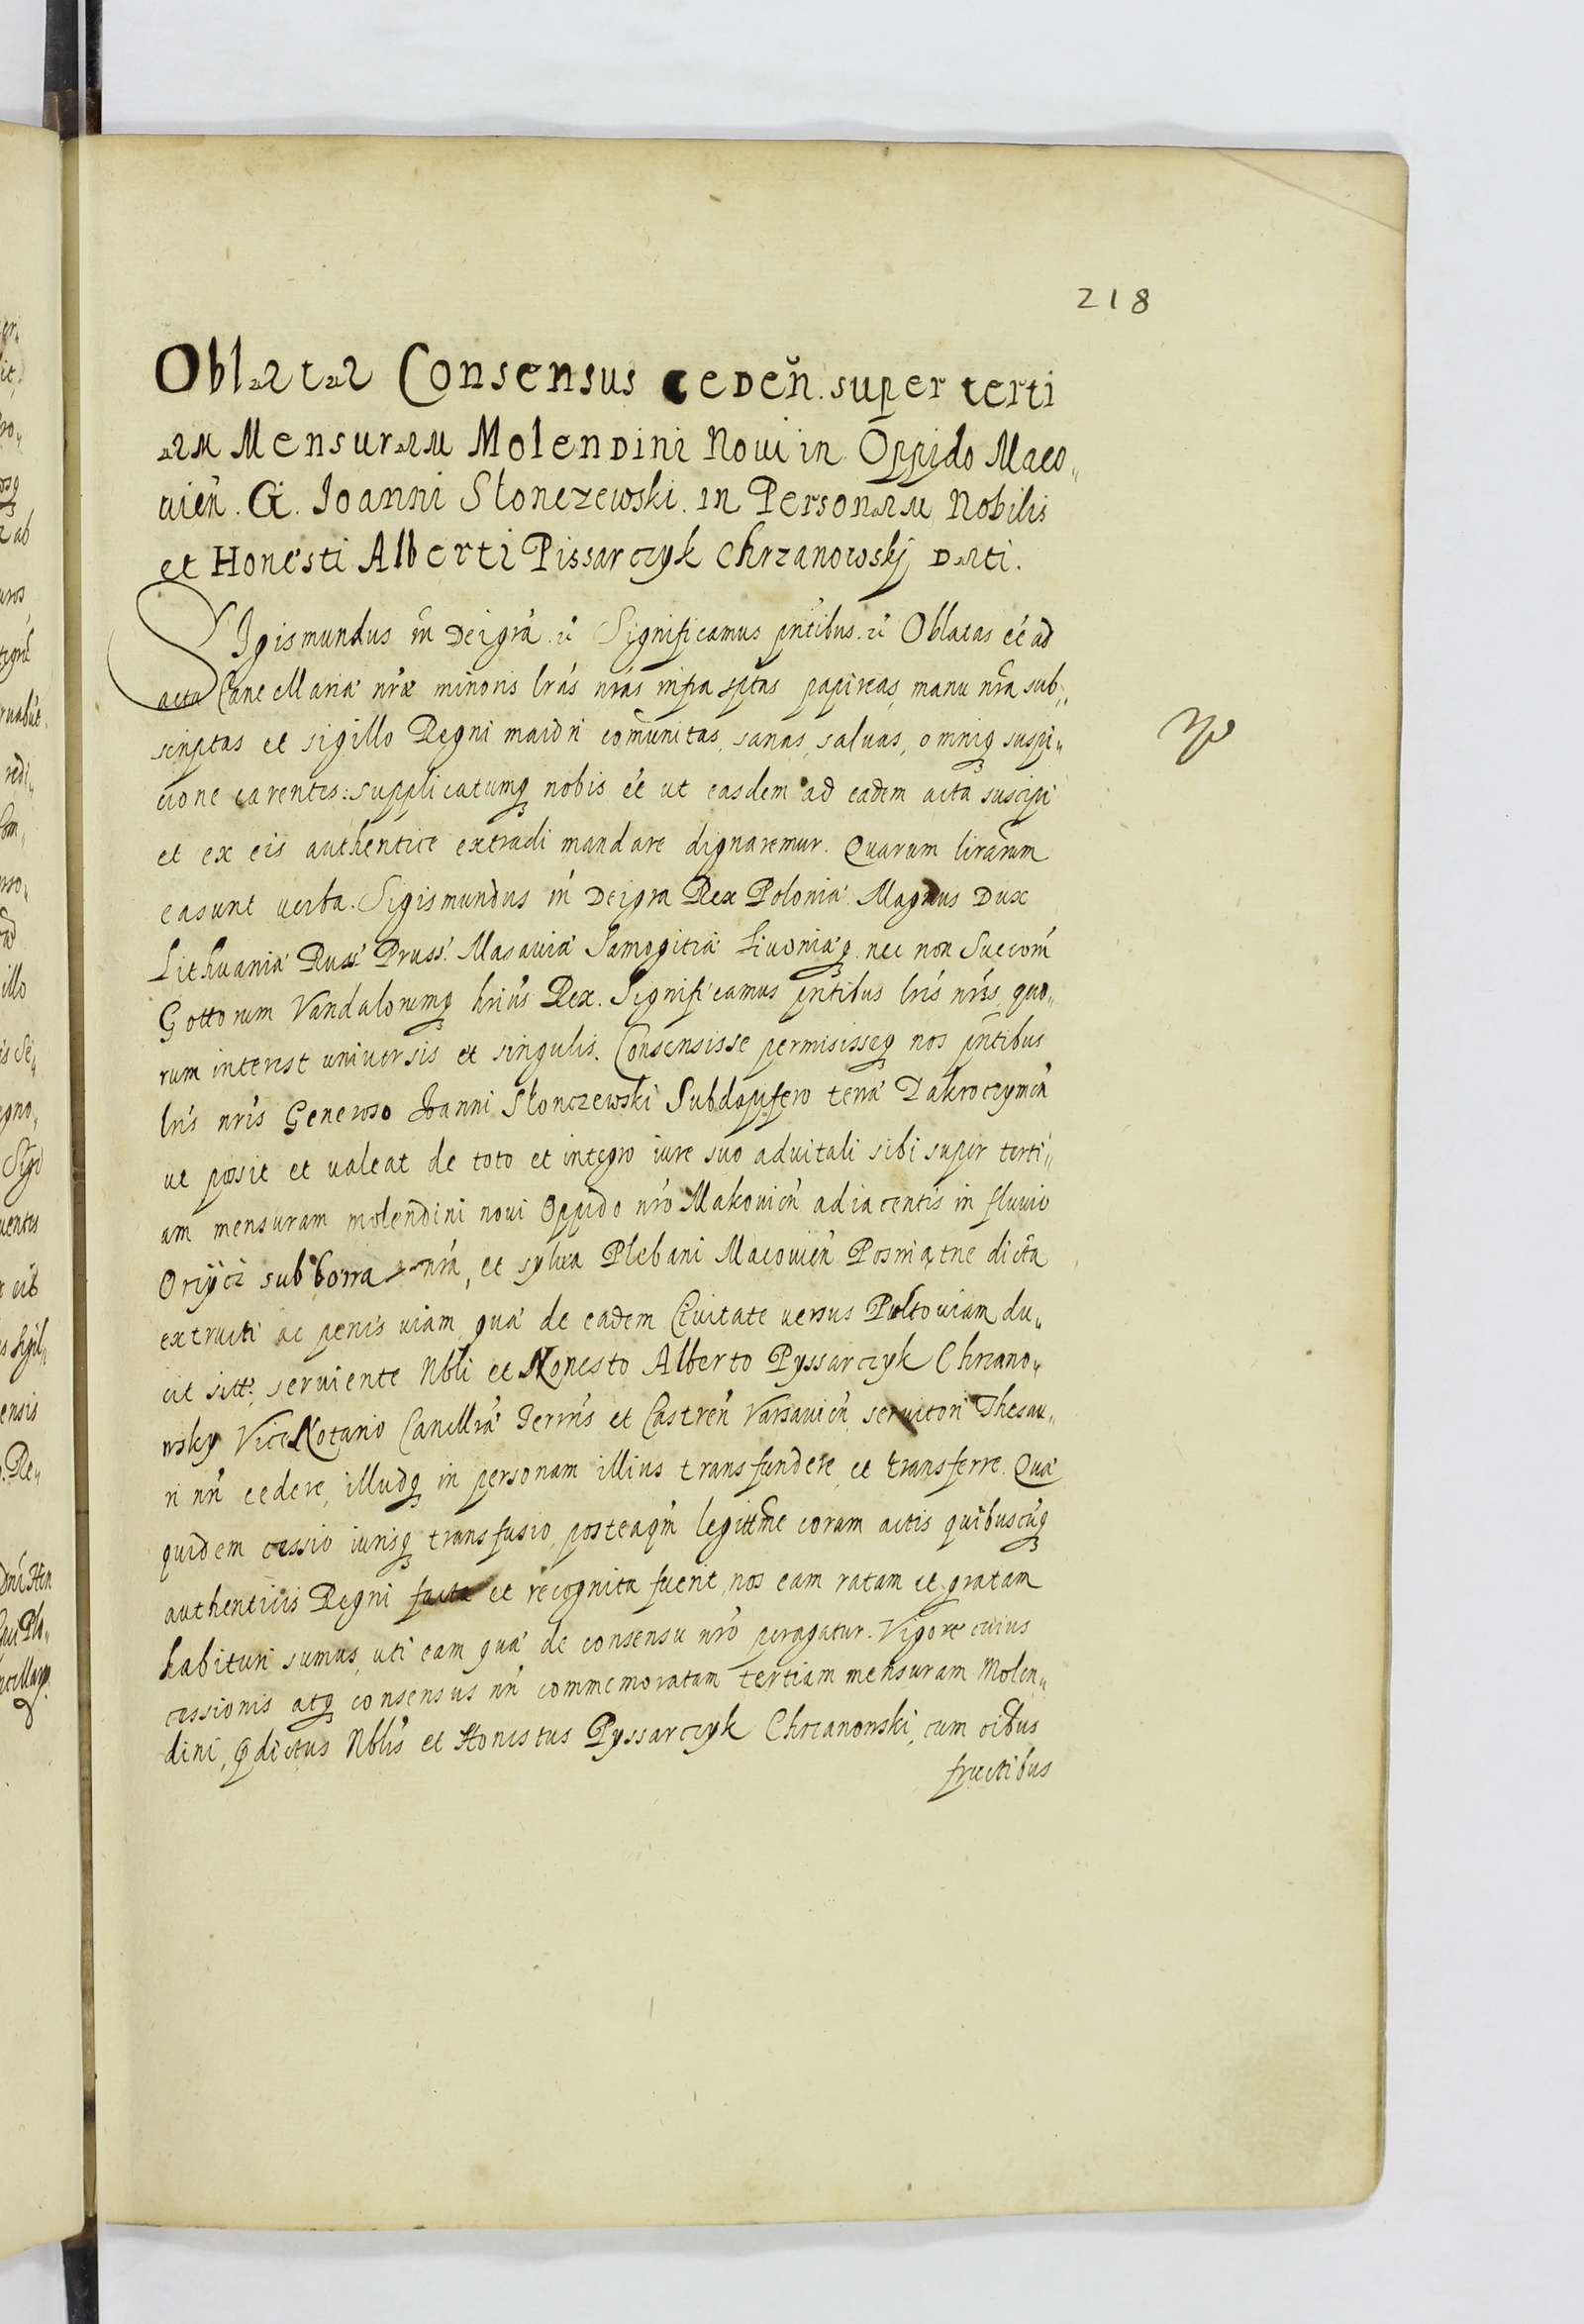 218
Oblata Consensus ceden̄. super terti
am Mensuram Molendini Noui in Oppido Maco„
uien̄. G. Joanni Slonczewski. in Personam Nobilis
et Honesti Alberti Pissarczyk Chrzanowskj Dati.
SIgismundus iii Dei gra̅. Significamus pn̅tibus. Oblatas ee̅ ad
acta Cancellariæ nr̅æ minoris lr̅as nr̅as infra sp̅tas papireas, manu nr̅a sub„
scriptas et sigillo Regni maiori com̅unitas, sanas, saluas, omniq suspi„
cione carentes: supplicatumq nobis ee̅ ut easdem ad eadem acta suscipi
et ex eis authentice extradi mandare dignaremur. Quarum lirarum
ea sunt verba. Sigismundus iii Dei gra Rex Poloniæ. Magnus Dux
Lithuaniæ Russ. Pruss. Masauiæ Samogitiæ Liuoniæq. nec non Suecom̅
Gottorum Vandalorumq hr̅ius Rex. Significamus pn̅tibus lr̅is nr̅is, quo„
rum interest uniuersis et singulis. Consensisse permisisseq nos pn̅tibus
lr̅is nr̅is Generoso Joanni Slonczewski Subdapifero terræ Zakroczymen̅
ut possit et ualeat de toto et integro iure suo aduitali sibi super terti„
am mensuram molendini noui Oppido nr̅o Makouien̅ adiacentis in fluuio
Orÿci sub borra nr̅a, et sylua Plebani Macouien̅ dicta
extructi ac penis uiam, quæ de eadem Ciuitate uersus Pultouiam du„
cit sitt. seruiente Nbli et Honesto Alberto Pyssarczyk Chrzano„
wsky Vice Notario Canellriæ Terris et Castren̅ Varsauien̅ seruitori Thesau„
ri nr̅i cedere, illudq in personam illius transfundere et transferre. Quæ
quidem cessio iurisq transfusio, posteaqm̅ legittme coram actis quibuscūq
authenticis Regni facta et recognita fuerit, nos eam ratam et gratam
habituri sumus, uti eam quæ de consensu nr̅o peragatur. Vigore cuius
cessionis atq consensus nr̅i commemoratam tertiam mensuram Molen„
dini, p̅dictus Nblis et Honestus Pyssarczyk Chrzanonski, cum oib̅us
fructibus